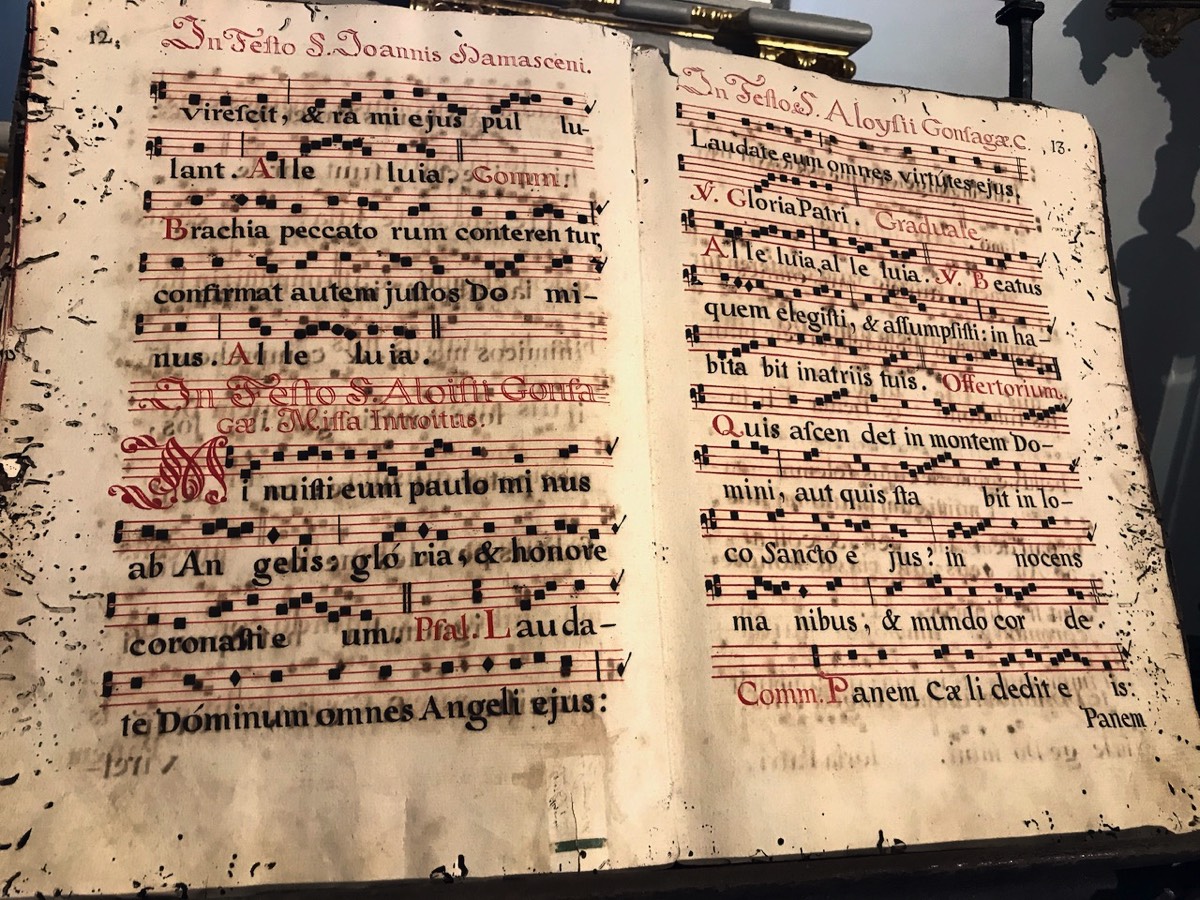 12.
In Festo S. Joannis Damasceni.
virescit, & ra mi ejus pul lu-
lant. Al le luia. Comm.
Brachia peccato rum conteren tur,
confirmat autem justos Do mi-
nus. Al le lu ia.
In Festo S. Aloisii Gonsa-
gæ. Missa Introitus.
Mi nuisti eum paulo mi nus
ab An gelis: gló ria, & honore
coronasti e um. Psal. Lauda-
te Dóminum omnes Angeli ejus:
In Festo S. Aloysii Gonsagæ C. 13.
Laudate eum omnes virtutes ejus.
V. Gloria Patri. Graduale.
Al le luia, al le luia. V. Beatus
quem elegisti, & assumpsisti: in ha-
bita bit in atriis tuis. Offertorium.
Quis ascen det in montem Do-
mini, aut quis sta bit in lo-
co Sancto e jus? in nocens
ma nibus, & mundo cor de.
Comm. Panem Cæ li dedit e is:
Panem